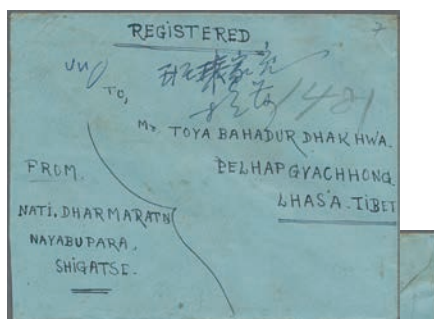 REGISTERED,
TO,
Mr TOYA BAHADUR DHAKHWA.
DELHAP GYACHHONG.
LHASA. TIBET
FROM.
NATI. DHARMARATN
NAYABUPARA.
SHIGATSE.